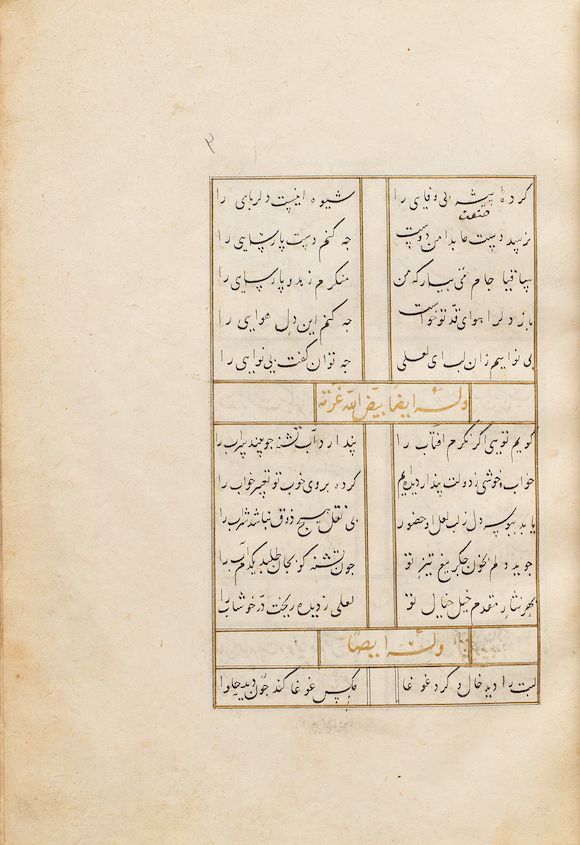 ۲
کردهٔ پیشه بی وفای را شیوه اینست دلربای را
نرسد دست عابد امن دوست چه کنم دست پارسایی را
صنعت
ساقیا جام می بیار که من منکرم زهد و پارسایی را
باز دلرا هوای قدّ تو خواست چه کنم این دل هوایی را
بی نواییم زان لب ای لعلی چه توان گفت بی نوایی را
وله ایضا بیّض الله غرّته
کویم تویی اکر نکرم افتاب را پندارد آب تشنه جو بیند سراب را
خواب خوشی ز دولت پندار دیده‌ایم کرده بروی خوب تو تعبیر خواب را
یابد ببوسه دل ز لب لعل او حضور بی نقل هیچ ذوق نباشد شراب را
جوید دلم بخون جکر تیغ تیز تو چون تشنه کو بجان طلبد یکدم آب را
بهر نثار مقدم خیل خیال تو لعلی ز دیده ریخت در خوشاب را
وله ایضا
لبت را دید خال و کرد غوغا مکس غوغا کند چون دید حلوا